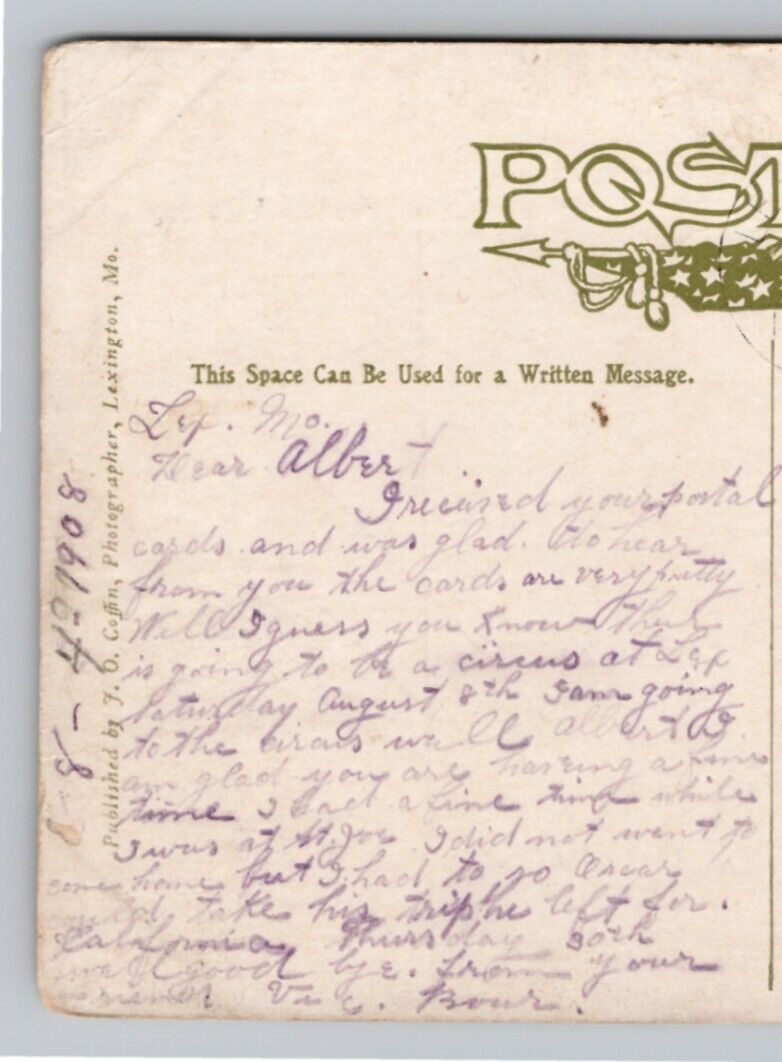 POST
This Space Can Be Used for a Written Message.
Published by J. O. Coffin, Photographer, Lexington, Mo.
8-4-1908
Lex. Mo.
Dear Albert
I recieved your postal
cards and was glad. to hear
from you the cards are very pretty
Well I guess you know there
is going to be a circus at Lex
Saturday August 8th I am going
to the circus well Albert I
am glad you are having a fine
time I had a fine time while
I was at St. Joe I did not want to
come home but I had to so Oscar
could take his trip he left for.
California Thursday 30th
well good bye. from your
friend Vic. Bour.